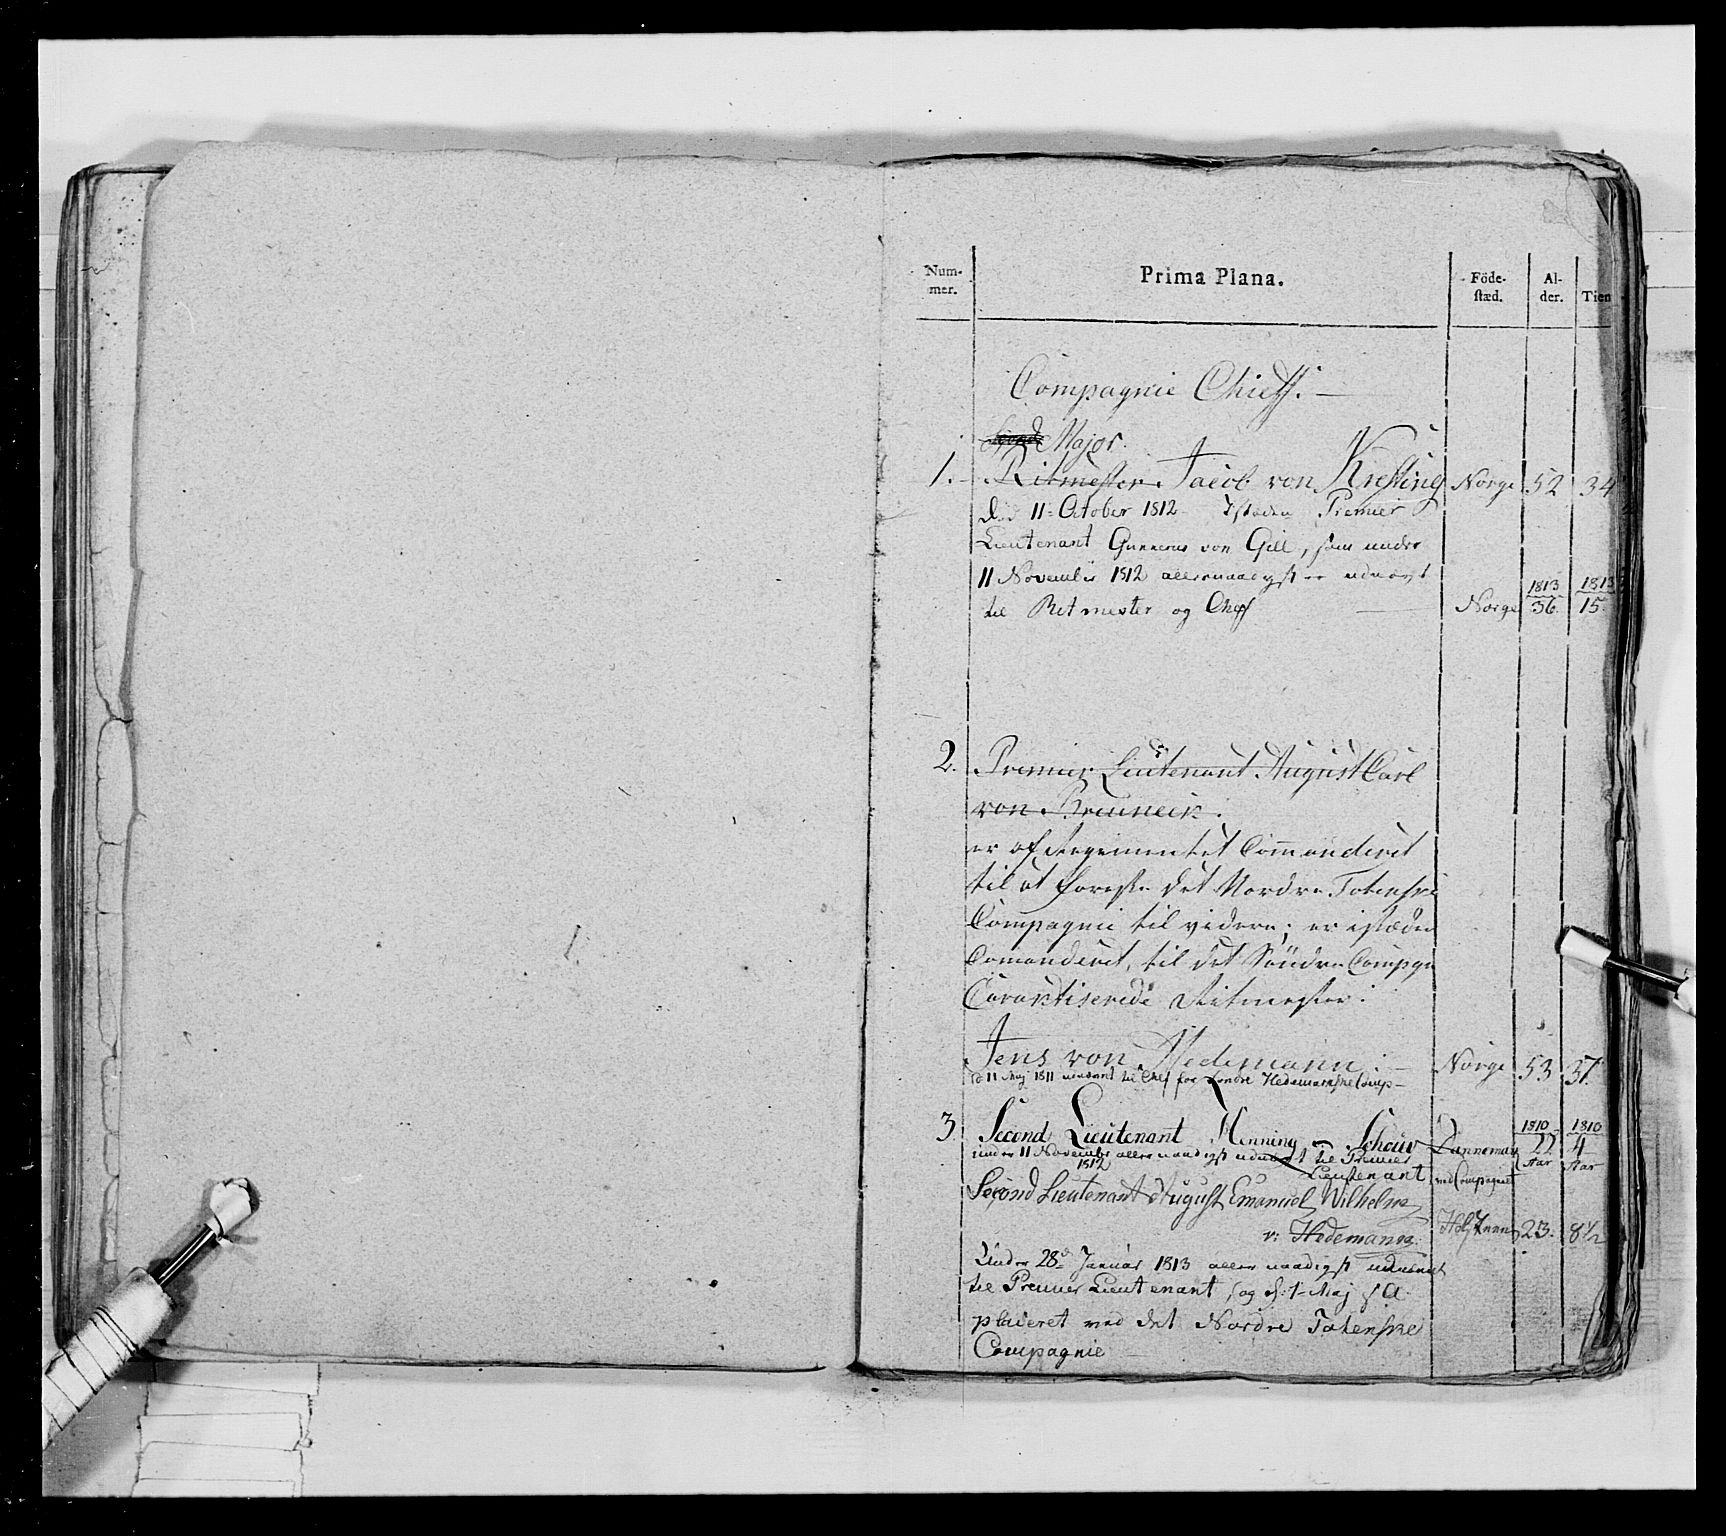 Num-
mer.
Prima Plana.
Föde-
stæd.
Al-
der.
Tien
Compagnie Cheff.
Second Major.
1. Ritmester Jacob von Kressing Norge 52 34
Död 11 October 1812 Istæden Premier
Lieutenant Gunnerus von Gill, som under
11 November 1812 allernaadigst er udnævnt
til Ritmester og Chef
Norge 1813 36. 1813 15.
2. Premier Lieutenant August Carl
von Breuneck.
er af Regimentet Commanderet
til at forestaae det Nordre Totenske
Compagnie til videre; er istæden
Comanderet, til det Söndre Compgn
Carakteriserede Ritmester:
Jens von Hedemann Norge 53 37.
d 11 Maj 1811 til Chef for Söndre Hedemarkske Comp
3. Second Lieutenant Henning Schouv Dannemark 1810 22 Aar 1810 4 Aar
under 11 November allernaadigst udnævnt til Premier
1812 Lieutenant ved Compagniet
Second Lieutenant August Emanuel Wilhelm
v: Hedemann. Holsteen 23. 8½
Under 28de Januar 1813 allernaadigst udnævnt
til Premier Lieutenant, og d: 1 Maj s A
placeret ved det Nordre Totenske
Compagnie
1.